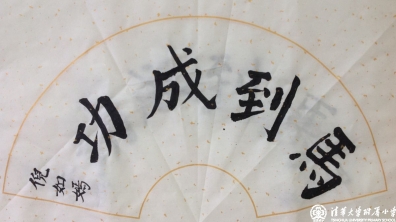 馬到成功
倪如嫣
清华大学附属小学